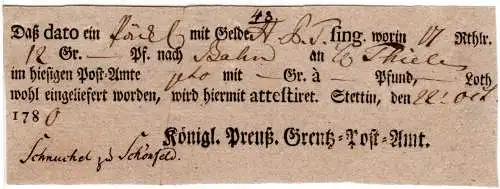 48
Daß dato ein Päckl mit Gelde H L. T. sing. worin 17 Rthlr.
12 Gr. — Pf. nach Bahn an C Thiele
im hiesigen Post-Amte mit — Gr. à — Pfund, Loth
wohl eingeliefert worden, wird hiermit attestiret. Stettin, den 22t. Oct
1780
Königl. Preuß. Grentz-Post-Amt.
Schnuchel Schönfeld.